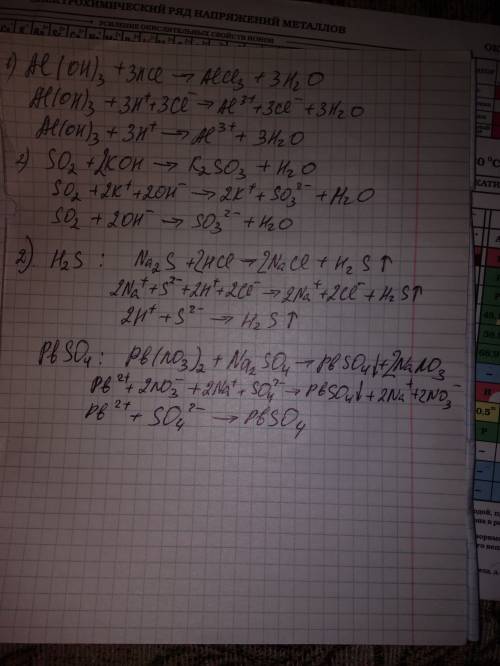 ЭЛЕКТРОХИМИЧЕСКИЙ РЯД НАПРЯЖЕНИЙ МЕТАЛЛОВ
УСИЛЕНИЕ ОКИСЛИТЕЛЬНЫХ СВОЙСТВ ИОНОВ
1) Al(OH)₃ + 3HCl → AlCl₃ + 3H₂O
Al(OH)₃ + 3H⁺ + 3Cl⁻ → Al³⁺ + 3Cl⁻ + 3H₂O
Al(OH)₃ + 3H⁺ → Al³⁺ + 3H₂O
2) SO₂ + 2KOH → K₂SO₃ + H₂O
SO₂ + 2K⁺ + 2OH⁻ → 2K⁺ + SO₃²⁻ + H₂O
SO₂ + 2OH⁻ → SO₃²⁻ + H₂O
2) H₂S : Na₂S + 2HCl → 2NaCl + H₂S↑
2Na⁺ + S²⁻ + 2H⁺ + 2Cl⁻ → 2Na⁺ + 2Cl⁻ + H₂S↑
2H⁺ + S²⁻ → H₂S↑
PbSO₄ : Pb(NO₃)₂ + Na₂SO₄ → PbSO₄↓ + 2NaNO₃
Pb²⁺ + 2NO₃⁻ + 2Na⁺ + SO₄²⁻ → PbSO₄↓ + 2Na⁺ + 2NO₃⁻
Pb²⁺ + SO₄²⁻ → PbSO₄